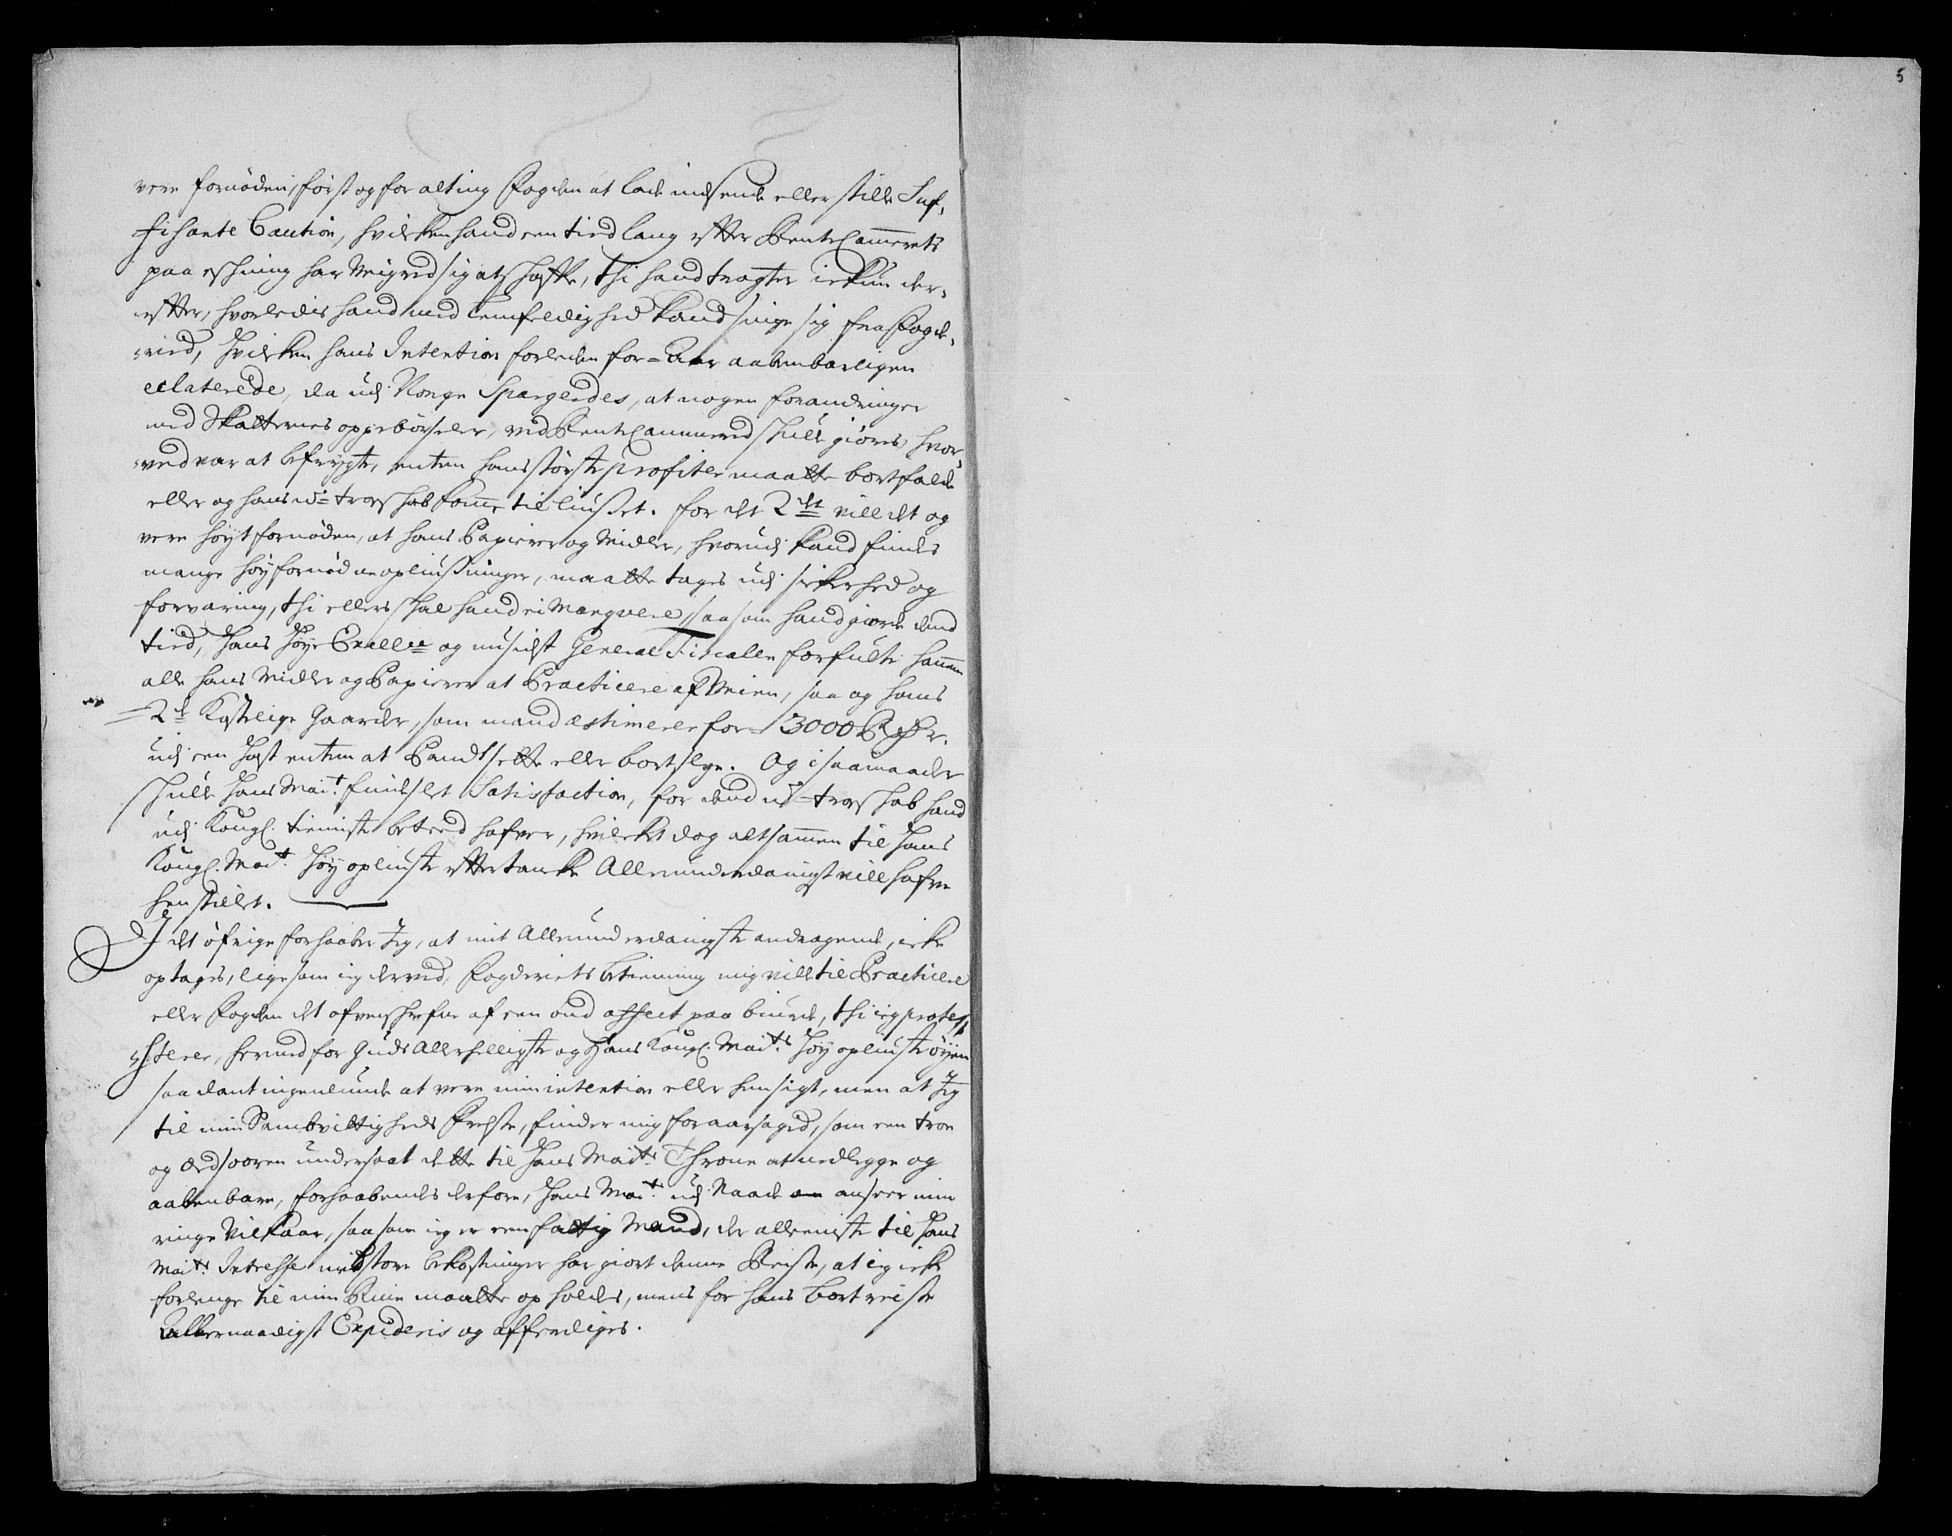 5
vere fornøden, først og for alting Fogden at lade indsende eller stille Suf-
fisante Caution, hvilken hand een tiid lang efter Rente Cammerets
paa eschning har veigred sig at schaffe, thi hand tragter ickun der-
efter, hvorledis hand med lemfeldighed kand svinge sig fra Fogde-
riid, hvilken hans Intention forleden for-Aar aabenbarligen
eclaterede, da udj Norge Spargerdes, at nogen forandringer
med Skatternes oppebørseler, ved Rente Cammered skulle giøres, hvor-
ved var at befrygte, enten hans største profiter maatte bortfalde
eller og hans u-troeschab komme til liuset. for det 2det vill det og
vere høyt fornøden, at hans Papierer og Midler, hvorudj kand findes
mange høyfornødne opliusninger, maatte tages udj sickerhed og
forvaring, thi ellers schal hand ei manqvere, saasom hand giorde dend
tiid, Hans Høye Excellce og nu sidst General Fiscalen forfulte hannem
alle hans Midler og Papierer at Practicere af Veien, saa og hans
2de Kostelige Gaarder, som mand æstimerer for 3000 Rdr.
udj een hast enten at Pandtsette eller bortselge. Og i saamaader
schulle Hans Mait. findes let Satisfaction, for dend u-troeschab hand
udj Kongl. tienniste beteed hafver, hvilcket dog altsammen til Hans
Kongl. Mait. Høy opliuste eftertancke Allerunderdanigst vill hafve
henstillet.
I det øfrige forhaaber Jeg, at mit Allerunderdanigste andragende, icke
optages, lige som jeg derved, Fogderiets betienning mig vill til Practicere
eller Fogden det ofvenschrefne af een ond affect paa biurde, thi jeg prote-
sterer, hermed for Guds Allerhelligste og Hans Kongl. Maits. Høy opliuste øyen
saadant ingenlunde at vere min intention eller hensigt, men at Jeg
til min Samvittigheds Frelse, finder mig foraarsaged, som een troe
og Eedsooren undersaat dette til Hans Maits. Throne at nedlegge og
aabenbare, forhaabendes derfore, Hans Mait. udj Naade anseer min
ringe Vilkaar, saasom jeg er een fattig Mand, der alleeniste til Hans
Maits. Interesse med store bekostninger har giort denne Reise, at jeg icke
forlenge til min Ruin maatte opholdes, mens for hans bortreise
Allernaadigst Expideris og affærdiges.